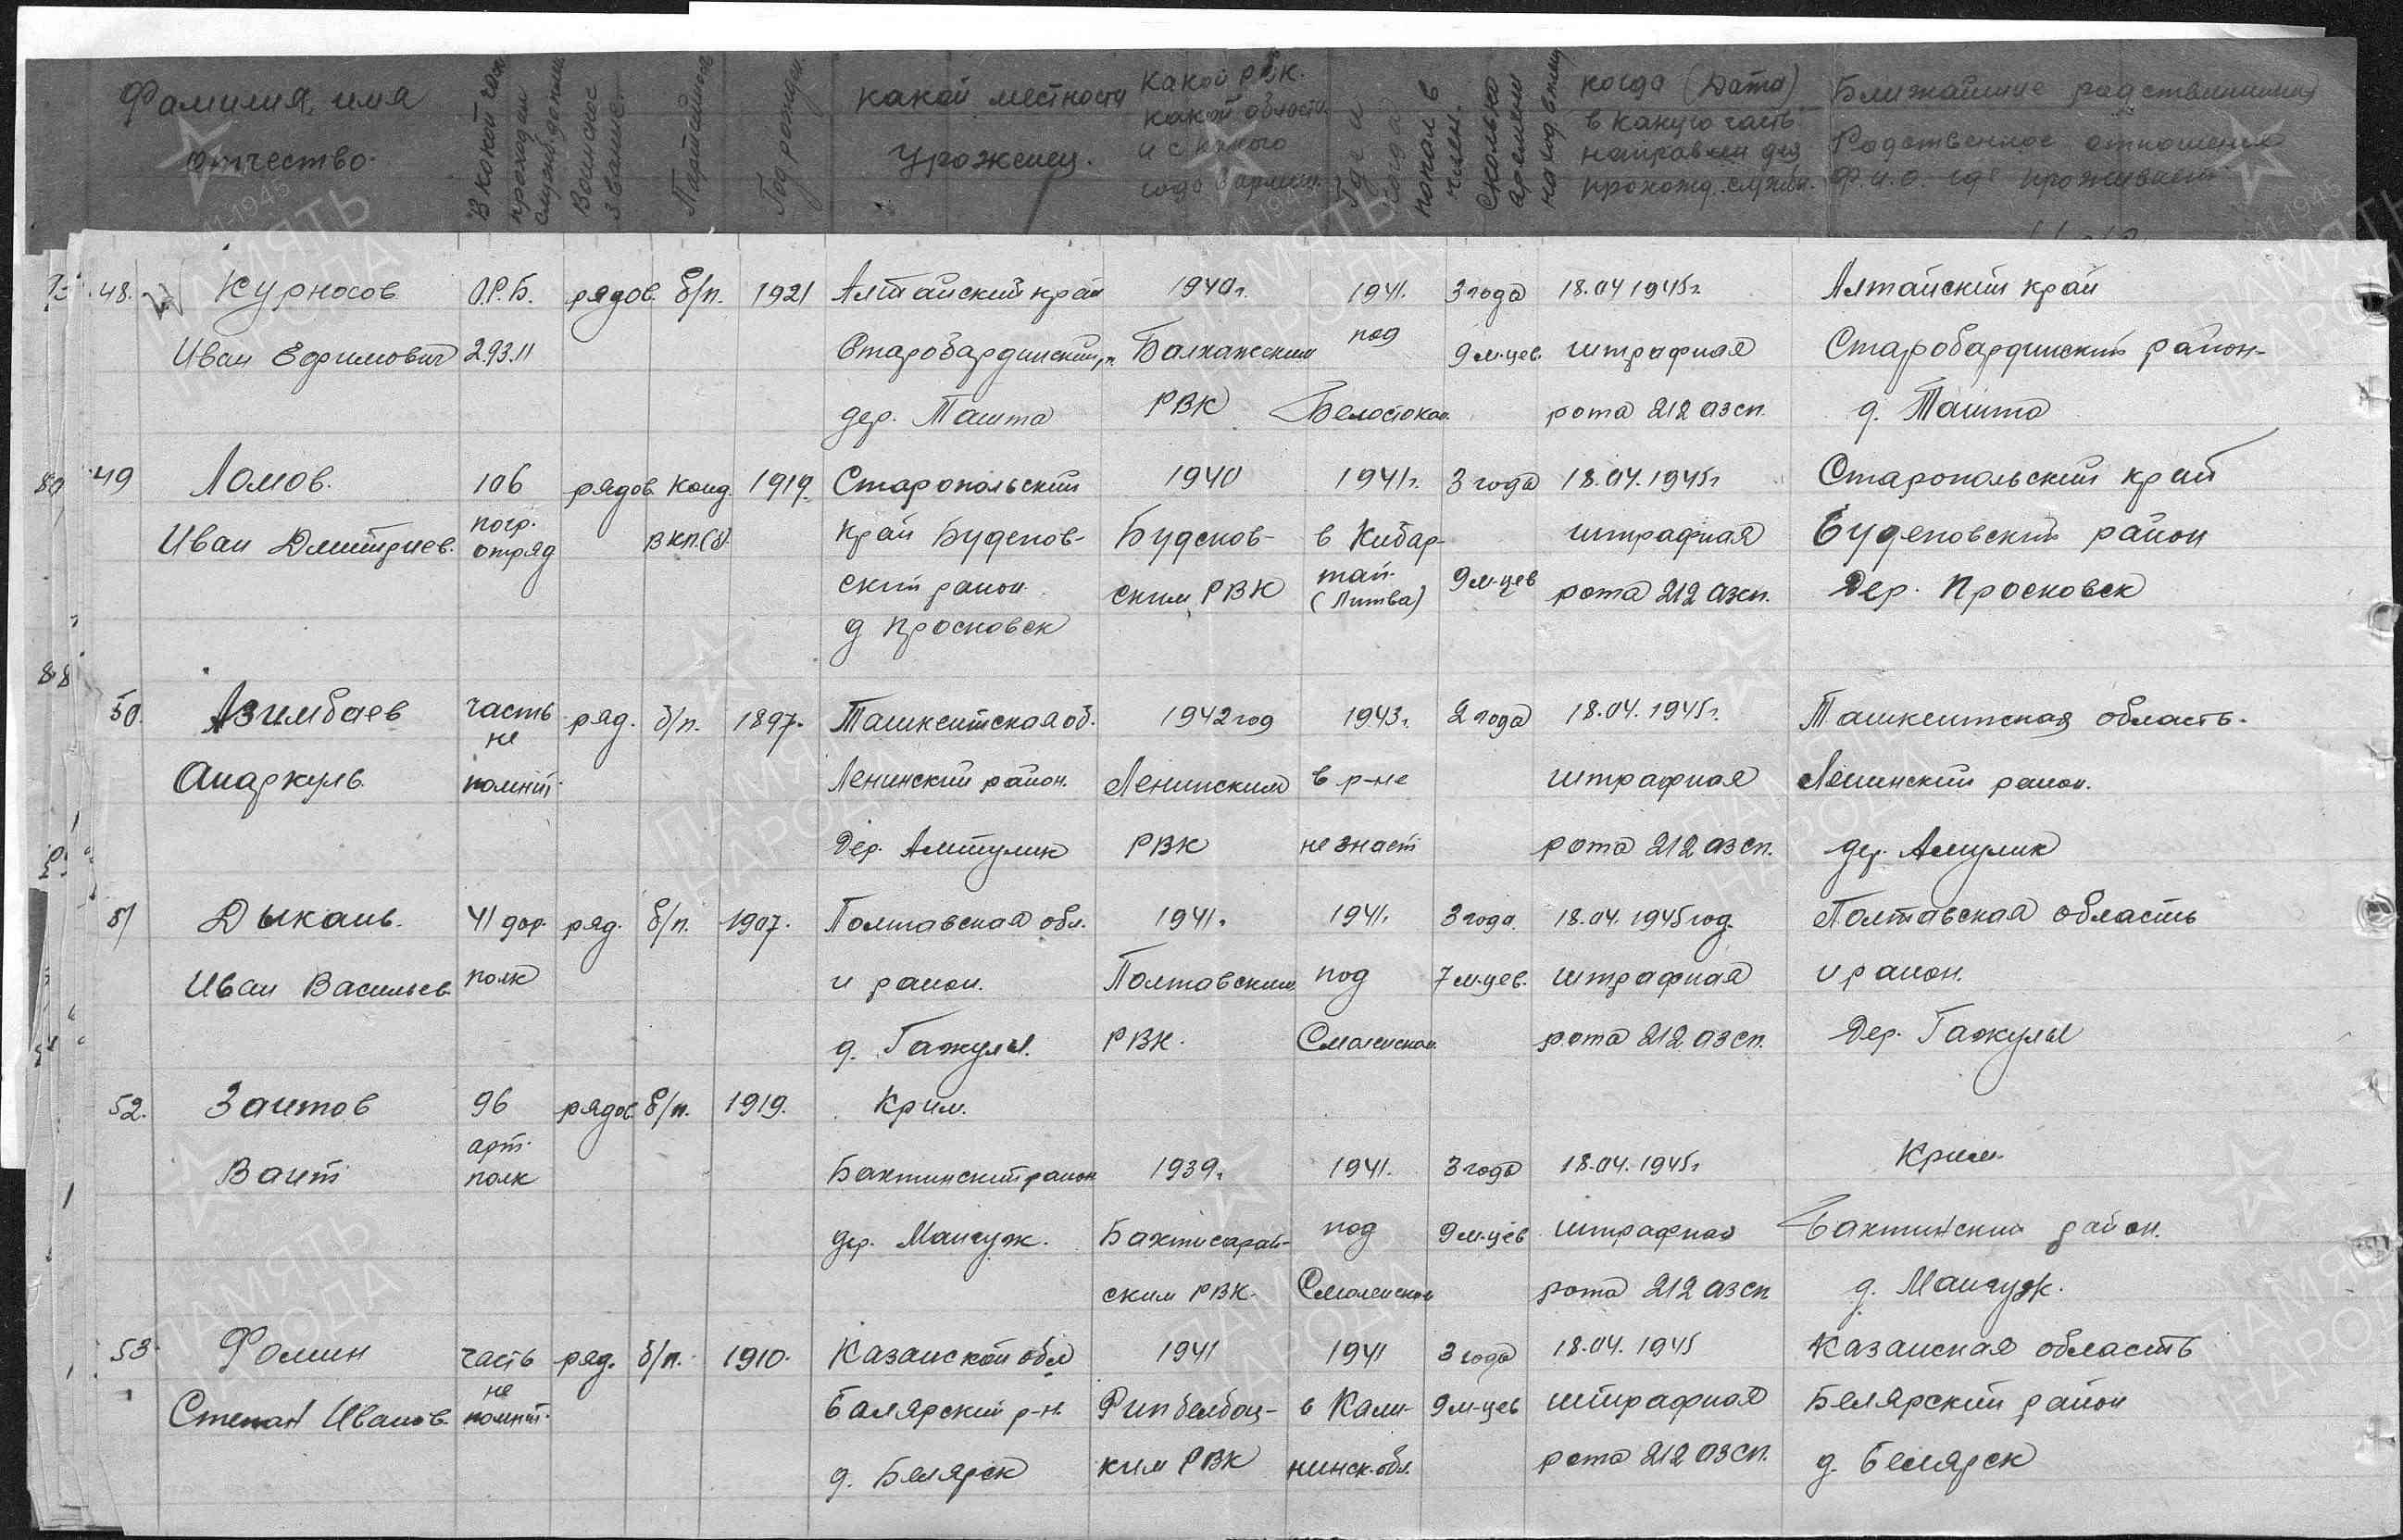 Фамилия, имя отчество.
В какой части проходил службу до плена
Воинское звание.
Партийность
Год рожден.
какой местности уроженец.
Какой РВК. какой области и с какого года в армии.
Где и когда попал в плен.
Сколько времени находился в плену
когда (Дата) в какую часть направлен для прохожд. службы.
Ближайшие родственники Родственное отношение Ф.И.О. где проживает
48. Курносов О.Р.Б. рядов. б/п. 1921 Алтайский край 1940г. 1941. 3 года 18.04 1945г. Алтайский край
Иван Ефимович 293.11 Старобардинский р. Балхашским под 9 м-цев. штрафная Старобардинский район-
дер. Ташта РВК Белостоком. рота 212 азсп. д. Ташта
49 Ломов. 106 рядов. канд. 1919. Старопольский 1940 1941г. 3 года 18.04.1945г Старопольский край
Иван Дмитриев. погр. отряд вкп.(б). край Буденов- Буденов- в Кибар- штрафная Буденовский район
ский район. ским РВК тай. (Литва) 9 м-цев рота 212 азсп. Дер. Просковек
д Просковек
50. Азимбаев часть не ряд. б/п. 1897. Ташкентская об. 1942 год 1943г. 2 года 18.04.1945г. Ташкентская область.
Анаркуль помнит. Ленинский район. Ленинским в р-не штрафная Ленинский район.
Дер. Амтулик РВК не знает рота 212 азсп. дер. Амулик
51 Дыкань. 41 дор. ряд. б/п. 1907. Полтавская обл. 1941. 1941. 3 года. 18.04.1945 год. Полтавская область
Иван Васильев. полк и район. Полтавским под 7 м-цев. штрафная и район.
д. Гажулы. РВК. Смоленском. рота 212 азсп. Дер. Гажулы
52. Заитов 96 рядов. б/п. 1919. Крим.
арт.
Ваит полк Бахтинский район 1939г. 1941. 3 года 18.04.1945г Крим.
дер. Мангуж. Бахтисарай- под 9 м-цев штрафная Бахтинский район.
ским РВК. Смоленском рота 212 азсп д. Мангуж.
53. Фомин часть ряд. б/п. 1910. Казанской обл 1941 1941 3 года 18.04.1945 Казанская область
Степан Иванов. не помнит. Балярский р-н. в Кали- 9 м-цев штрафная Белярский район
д. Белярск ким РВК нинск. обл. рота 212 азсп. д. Белярск
ПАМЯТЬ НАРОДА
1941-1945